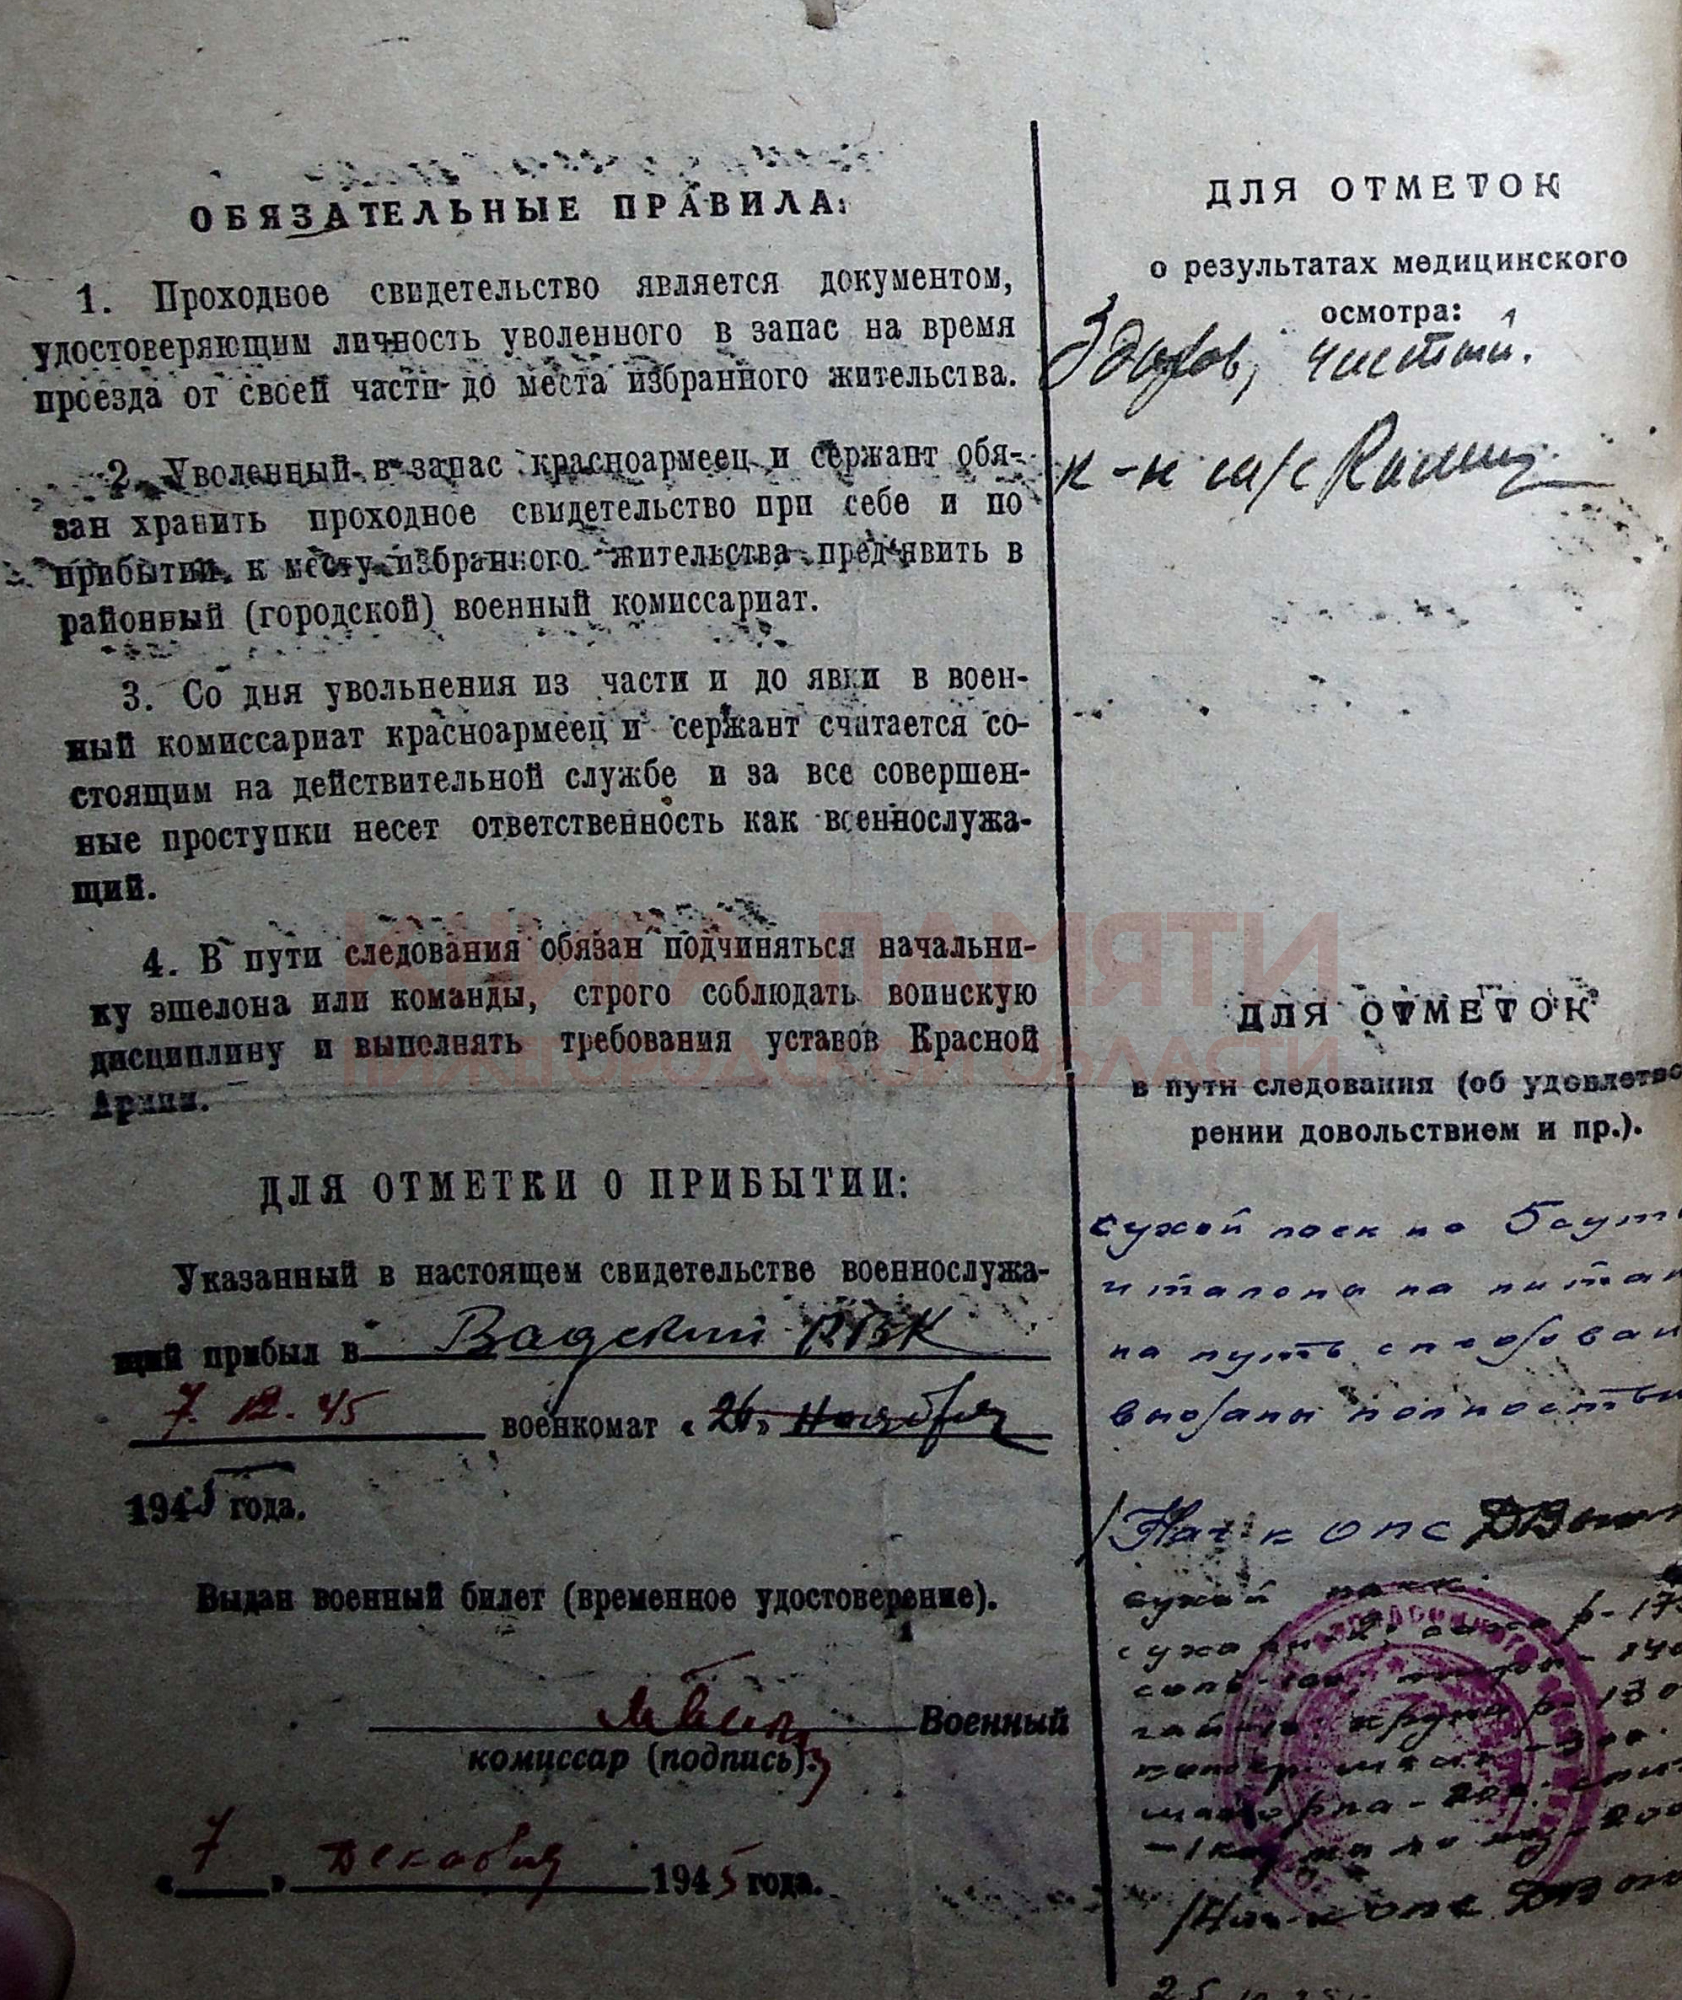 ОБЯЗАТЕЛЬНЫЕ ПРАВИЛА:
1. Проходное свидетельство является документом,
удостоверяющим личность уволенного в запас на время
проезда от своей части до места избранного жительства.
2. Уволенный в запас красноармеец и сержант обя-
зан хранить проходное свидетельство при себе и по
прибытии к месту избранного жительства пред'явить в
районный (городской) военный комиссариат.
3. Со дня увольнения из части и до явки в воен-
ный комиссариат красноармеец и сержант считается со-
стоящим на действительной службе и за все совершен-
ные проступки несет ответственность как военнослужа-
щий.
4. В пути следования обязан подчиняться начальни-
ку эшелона или команды, строго соблюдать воинскую
дисциплину и выполнять требования уставов Красной
Армии.
ДЛЯ ОТМЕТКИ О ПРИБЫТИИ:
Указанный в настоящем свидетельстве военнослужа-
щий прибыл в Вадский РВК
7. 12. 45 военкомат «26» ноября
1945 года.
Выдан военный билет (временное удостоверение).
Военный
комиссар (подпись).
«7» декабря 1945 года.
ДЛЯ ОТМЕТОК
о результатах медицинского
осмотра:
Здоров, чистый.
к-н м/с
ДЛЯ ОТМЕТОК
в пути следования (об удовлетво
рении довольствием и пр.).
сухой паек на 5 сут
и талона на питан
на путь следован
выданы полность
/Нач-к опс
сухой паек
сухари сахар-
соль
крупа
/Нач-к опс
25
КНИГА ПАМЯТИ
НИЖЕГОРОДСКОЙ ОБЛАСТИ